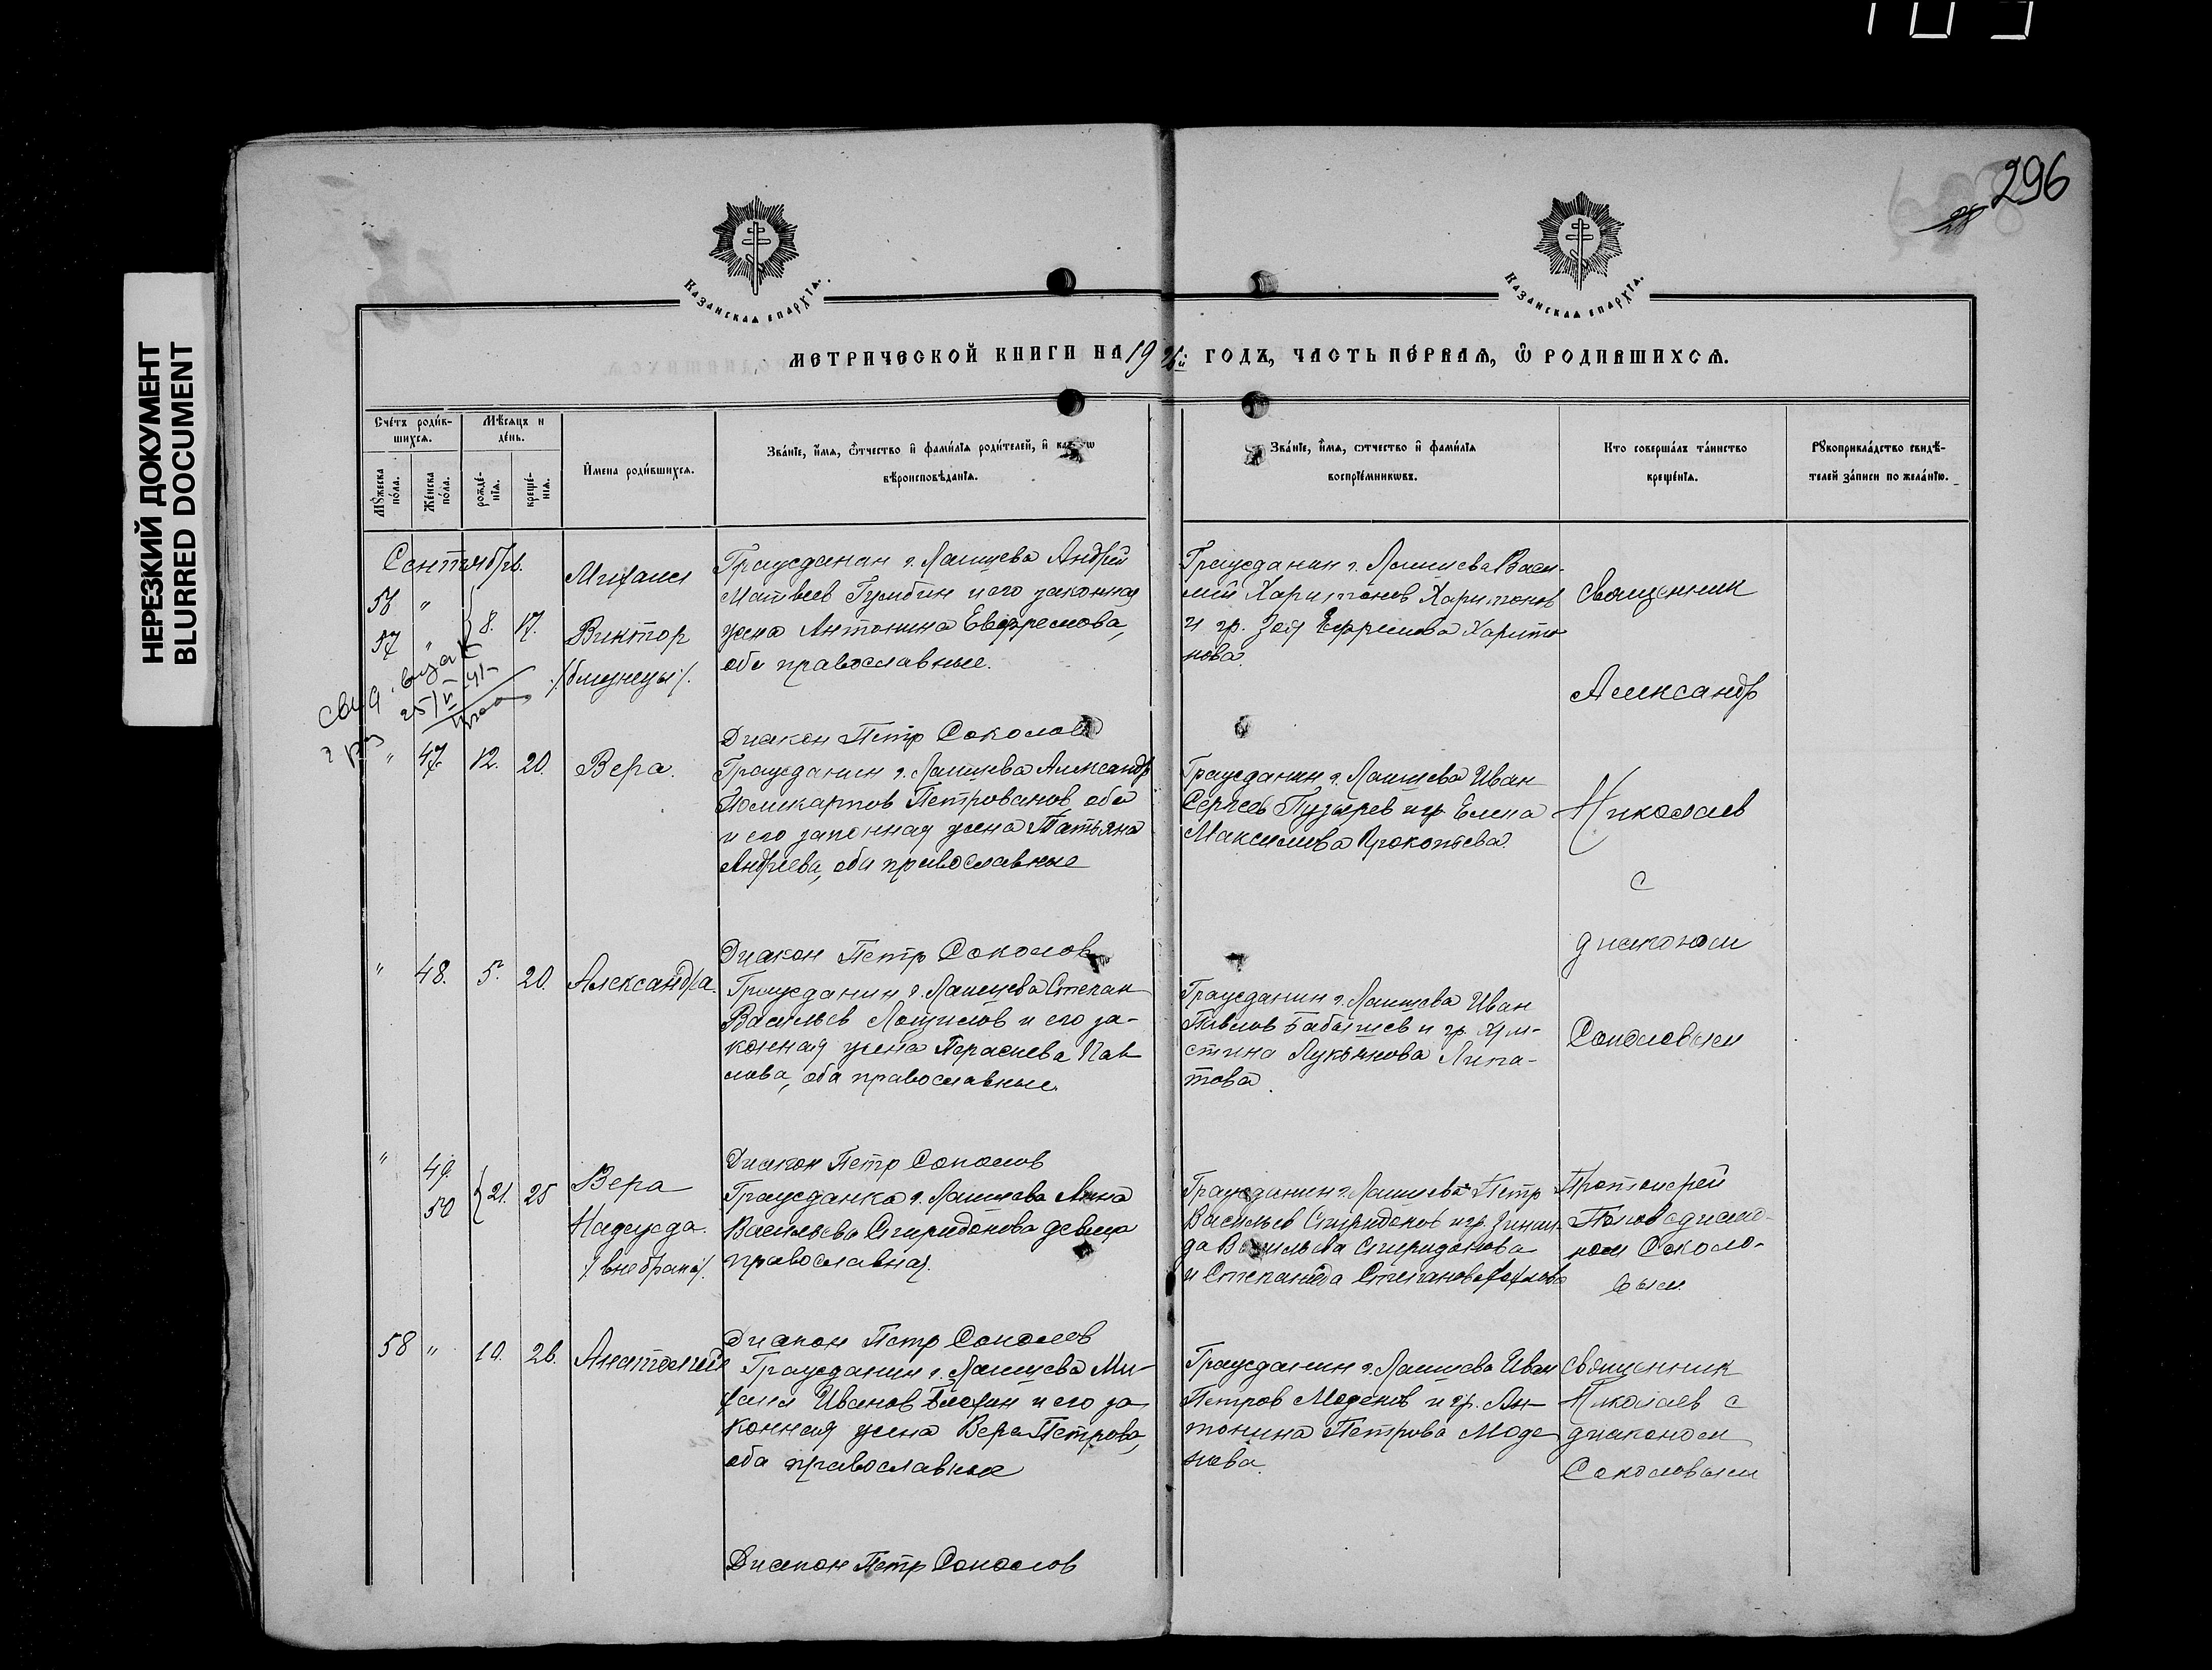 НЕРЕЗКИЙ ДОКУМЕНТ
BLURRED DOCUMENT
296
28
Казанская епархїа.
Казанская епархїа.
МЕТРИЧЕСКОЙ КНИГИ НА 19 ГОДЪ, ЧАСТЬ ПЕРВАЯ, Ѽ РОДИВШИХСЯ.
Счетъ родив-
шихся.
Мѣсяцъ и
день.
Мужеска
пола.
Женска
пола.
рожде-
нія.
креще-
нія.
Имена родившихся.
Званіе, имя, отчество и фамилія родителей, и
вѣроисповѣданія.
Званіе, имя, отчество и фамилія
воспріемниковъ.
Кто совершалъ таинство
крещенія.
Рукоприкладство свидѣ-
телей записи по желанію.
Сентябрь.
56 " 57 " 8. 17.
Михаил
Виктор
/близнецы/.
Гражданин г. Лаишева Андрей
Матвеев Гумбин и его законная
жена Антонина Евфремова,
оба православные.
Гражданин г. Лаишева Васи-
лий Харитонов Харитонов
и гр. Зоя Ефремова Харито-
нова.
Священник
Александр
Николаев
с
диаконом
Соколовым
свид. выдан
25/V-41-
Диакон Петр Соколов
" 47. 12. 20. Вера.
Гражданин г. Лаишева Александр
Поликарпов Петрованов, оба
и его законная жена Татьяна
Андреева, оба православные
Гражданин г. Лаишева Иван
Сергеев Пузырев и гр. Елена
Максимова Прокопьева.
Диакон Петр Соколов
" 48. 5. 20. Александра.
Гражданин г. Лаишева Степан
Васильев Лощилов и его за-
конная жена Параскева Пав-
лова, оба православные.
Гражданин г. Лаишева Иван
Павлов Бабышев и гр. Хри-
стина Лукьянова Липа-
това.
Диакон Петр Соколов
" 49. 50 21. 25
Вера
Надежда.
/вне брака/.
Гражданка г. Лаишева Анна
Васильева Спиридонова девица
православная.
Гражданин г. Лаишева Петр
Васильев Спиридонов и гр. Зинаи-
да Васильева Спиридонова
и Степанида Степанова
Протоиерей
Попов с диако-
ном Соколо-
вым.
Диакон Петр Соколов
58 " 10. 26. Анатолий
Гражданин г. Лаишева Ми-
хаил Иванов и его за
конная жена Вера Петрова,
оба православные
Гражданин г. Лаишева Иван
Петров Моденов и гр. Ан-
тонина Петрова Моде
нова.
Священник
Николаев с
диаконом
Соколовым
Диакон Петр Соколов